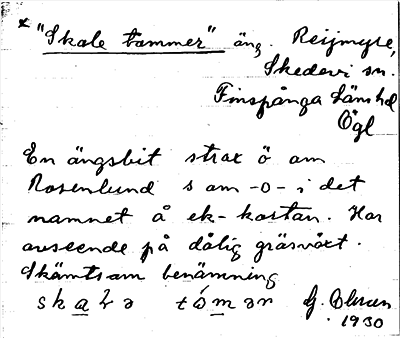 * "Skale tommer" äng. Reijmyre,
Skedevi sn.
Finspånga Länshd
Ögl
En ängsbit strax ö om
Rosenlund s om -o- i det
namnet å ek-kartan. Har
avseende på dålig gräsväxt.
Skämtsam benämning
G. Olsson
1930